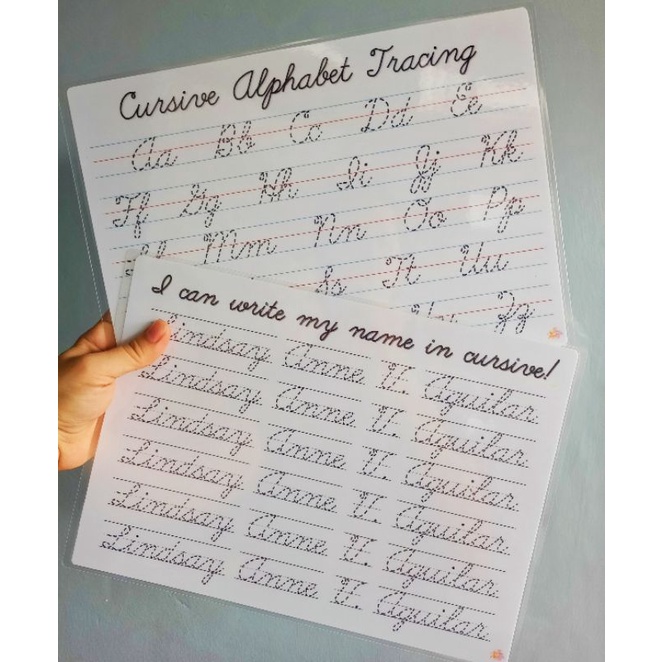 Cursive Alphabet Tracing
Aa Bb Cc Dd Ee
Ff Gg Hh Ii Jj Kk
Mm Nn Oo Pp
Ss Tt Uu
Zz
I can write my name in cursive!
Lindsay Anne V. Aguilar
Lindsay Anne V. Aguilar
Lindsay Anne V. Aguilar
Lindsay Anne V. Aguilar
Lindsay Anne V. Aguilar
Lindsay Anne V. Aguilar